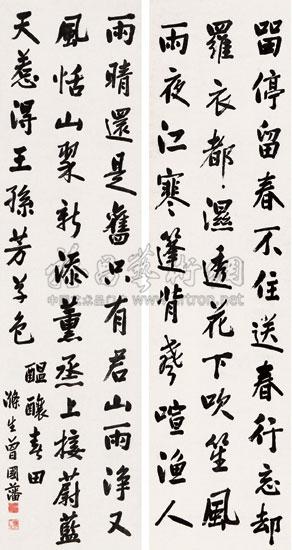 畱停留春不住送春行忘却
羅衣都濕透花下吹笙風
雨夜江寒篷背聲喧漁人
雨晴還是舊只有君山雨浄又
風恬山翠新添薰蒸上接蔚藍
天惹得王孫芳草色
醞釀春田
滌生曾國藩
雅昌藝術網